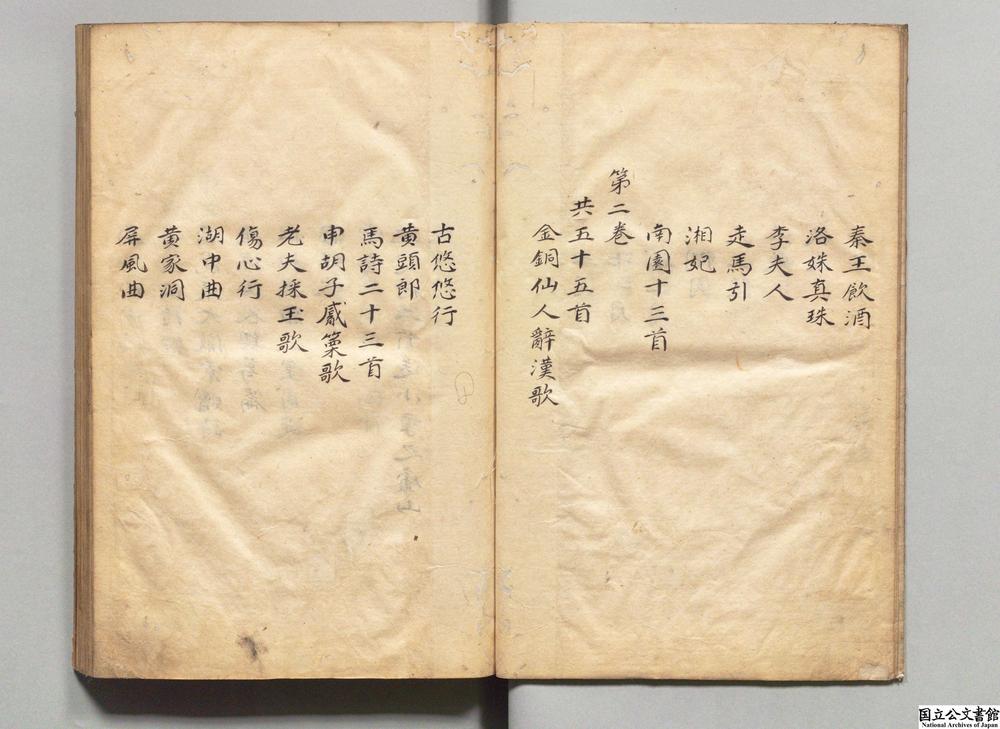 秦王飲酒
洛姝真珠
李夫人
走馬引
湘妃
南園十三首
第二卷
共五十五首
金銅仙人辭漢歌
古悠悠行
黄頭郎
馬詩二十三首
申胡子觱篥歌
老夫採玉歌
傷心行
湖中曲
黄家洞
屏風曲
国立公文書館
National Archives of Japan